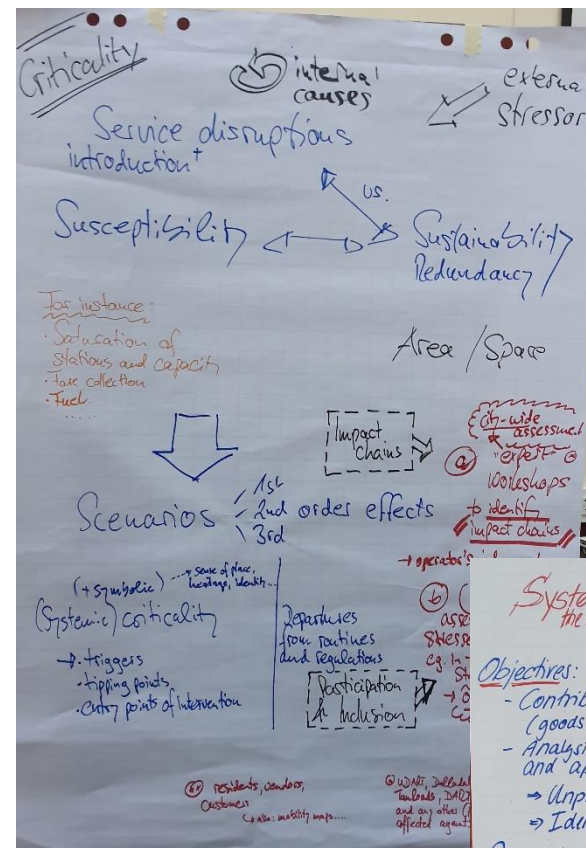 Criticality
internal
causes
externa
stressor
Service disruptions
introduction+
vs.
Susceptibility
Sustainability
Redundancy
For instance
· Saturation of
stations and capacity
· Fare collection
· Fuel
.....
Area / Space
Impact
chains
city-wide
assessment
a "expert"
workshops
to identify
impact chains
→ operator's
Scenarios
1st
2nd order effects
3rd
(+ symbolic) → sense of place,
heritage, identity...
(Systemic) criticality
→ triggers
· tipping points
· entry points of intervention
Departures
from routines
and regulations
Participation
& Inclusion
b
asse
stresse
e.g. in-
residents, vendors,
customer
↳ also: mobility maps....
and any other
affected agent
Syste
the
Objectives:
- Contrib
(goods
- Analysi
and a
⇒ Unp
⇒ Ide